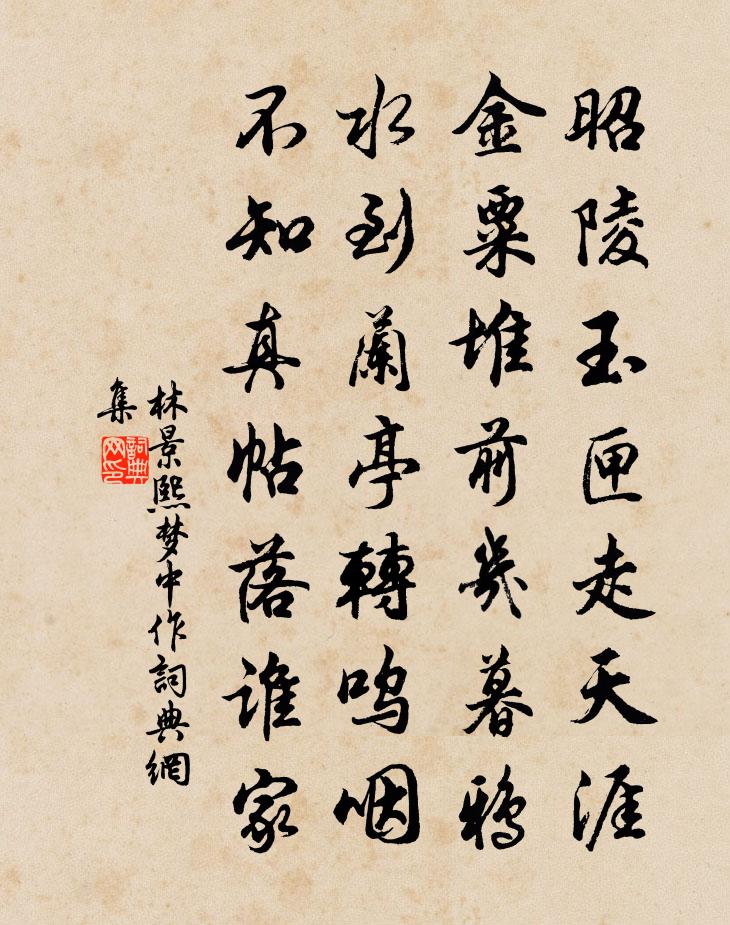 昭陵玉匣走天涯
金粟堆前幾暮鴉
水到蘭亭轉鳴咽
不知真帖落誰家
林景熙梦中作詞典網
集
詞典网印